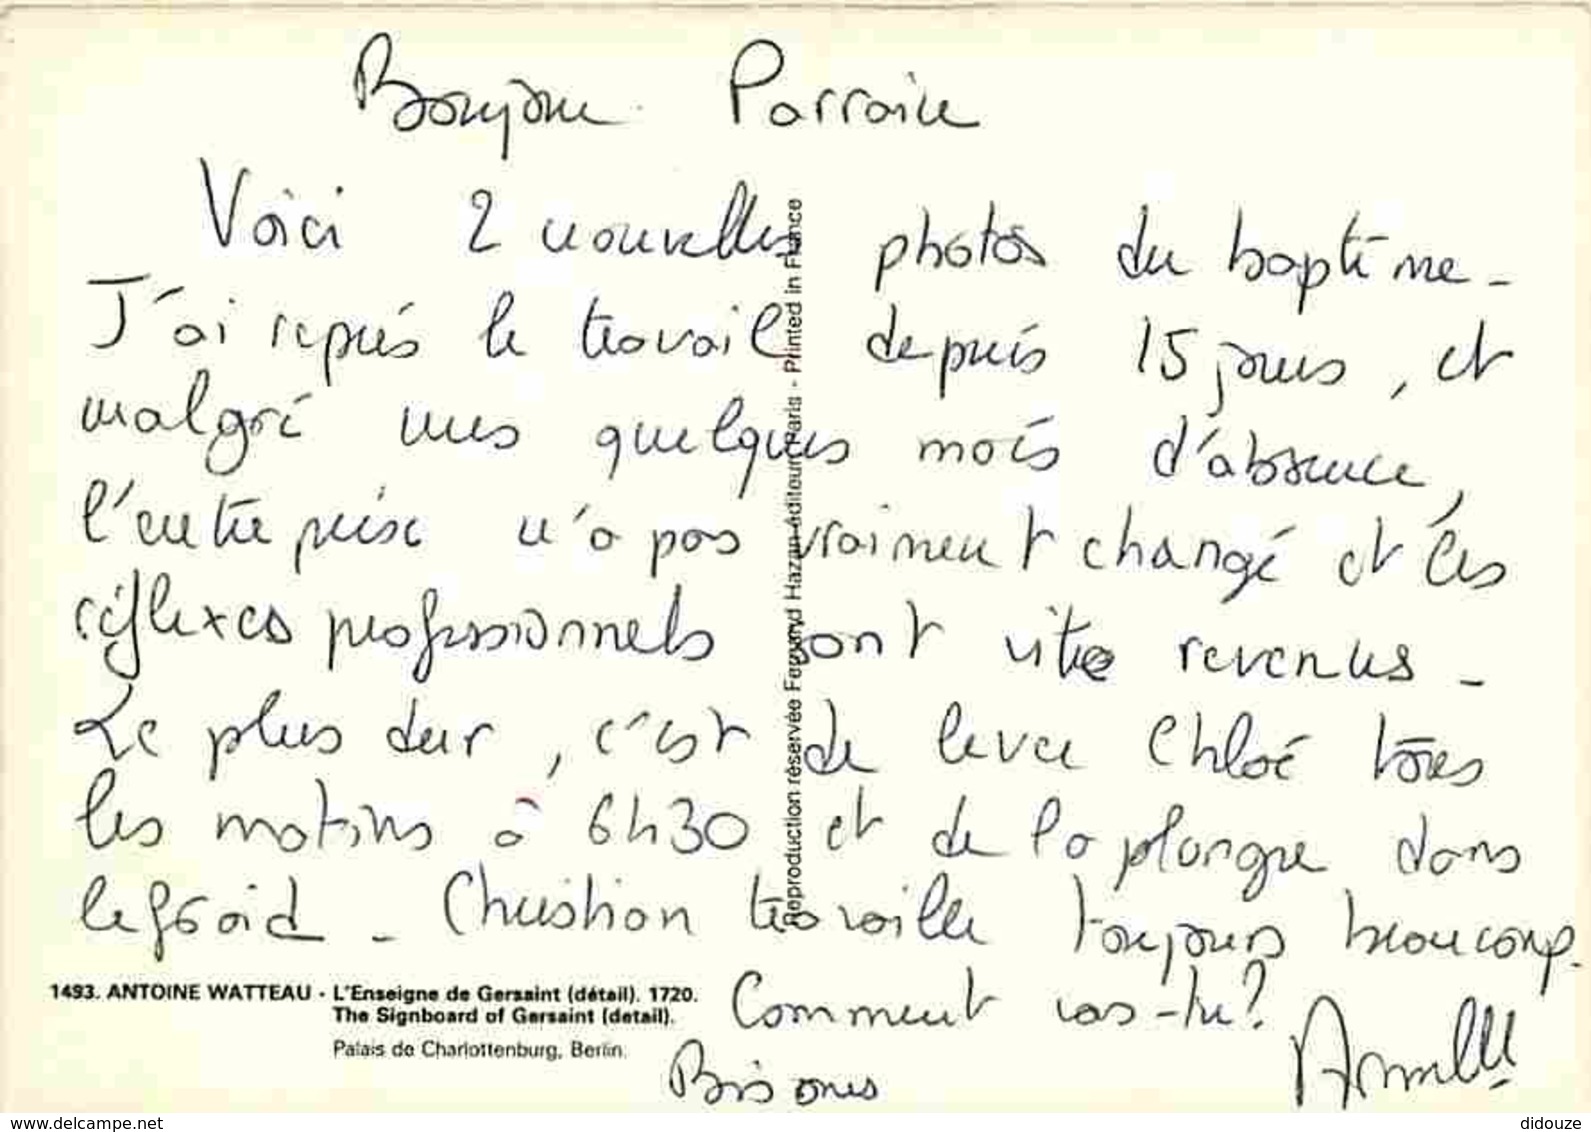 Bonjour Parrain
Voici 2 nouvelles photos du baptême -
J'ai repris le travail depuis 15 jours, et
malgré mes quelques mois d'absence,
l'entreprise n'a pas vraiment changé et les
réflexes professionnels sont vite revenus -
Le plus dur, c'est de lever Chloé tous
les matins à 6h30 et de la plonger dans
le froid - Christian travaille toujours beaucoup.
Comment vas-tu?
Bisous
Armelle
Reproduction réservée Fernand Hazan éditeur Paris - Printed in France
1493. ANTOINE WATTEAU - L'Enseigne de Gersaint (détail). 1720.
The Signboard of Gersaint (detail).
Palais de Charlottenburg, Berlin.
www.delcampe.net
didouze